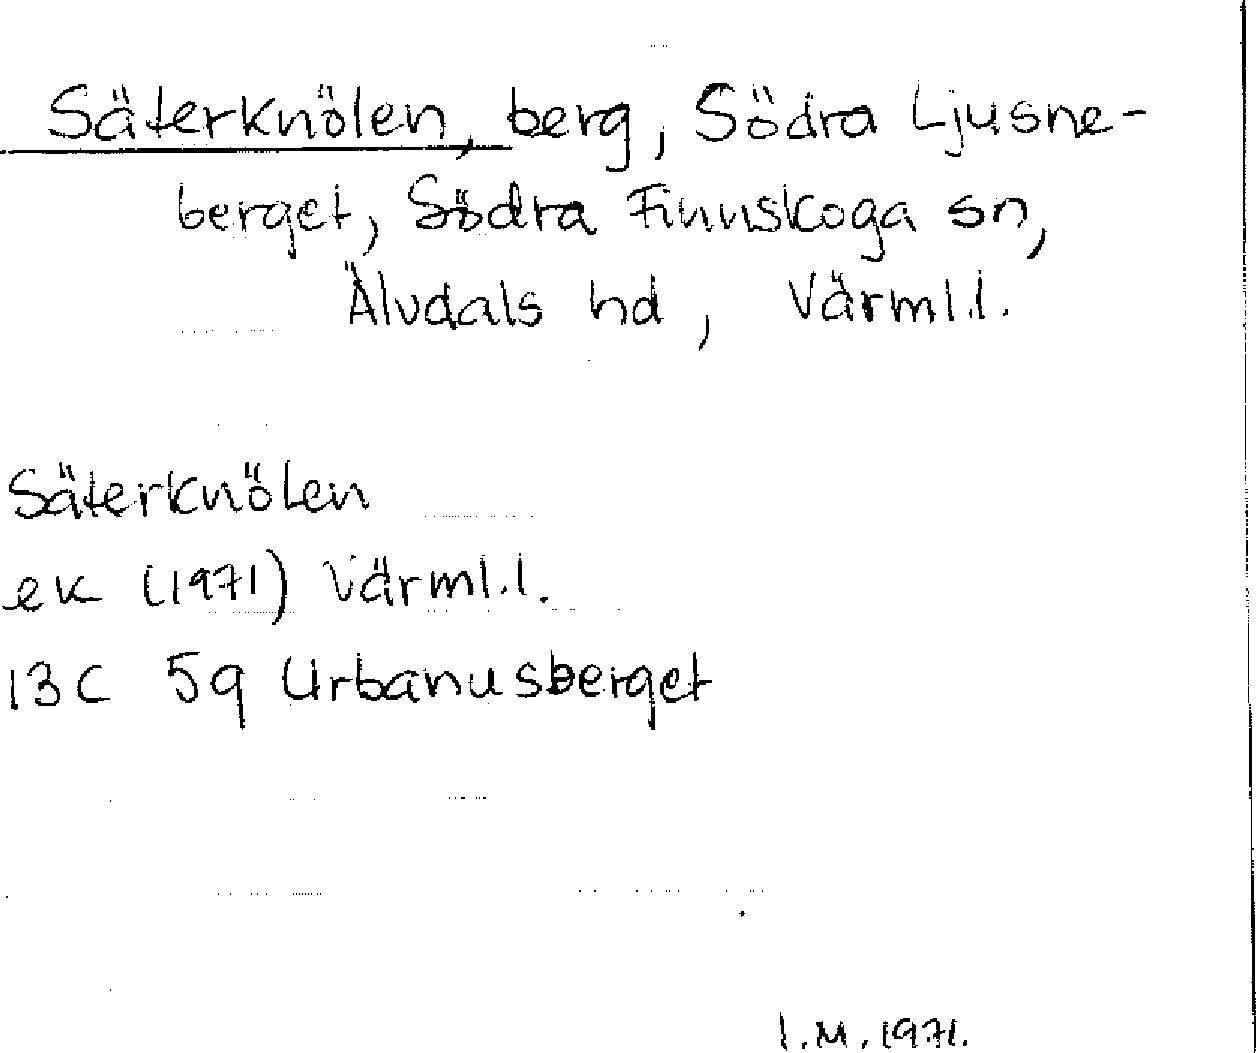 Säterknölen, berg, Södra Ljusne-
berget, Södra Finnskoga sn,
Älvdals hd, Värml.l.
Säterknölen
ek (1971) Värml.l.
13C 5g Urbanusberget
I.M. 1971.